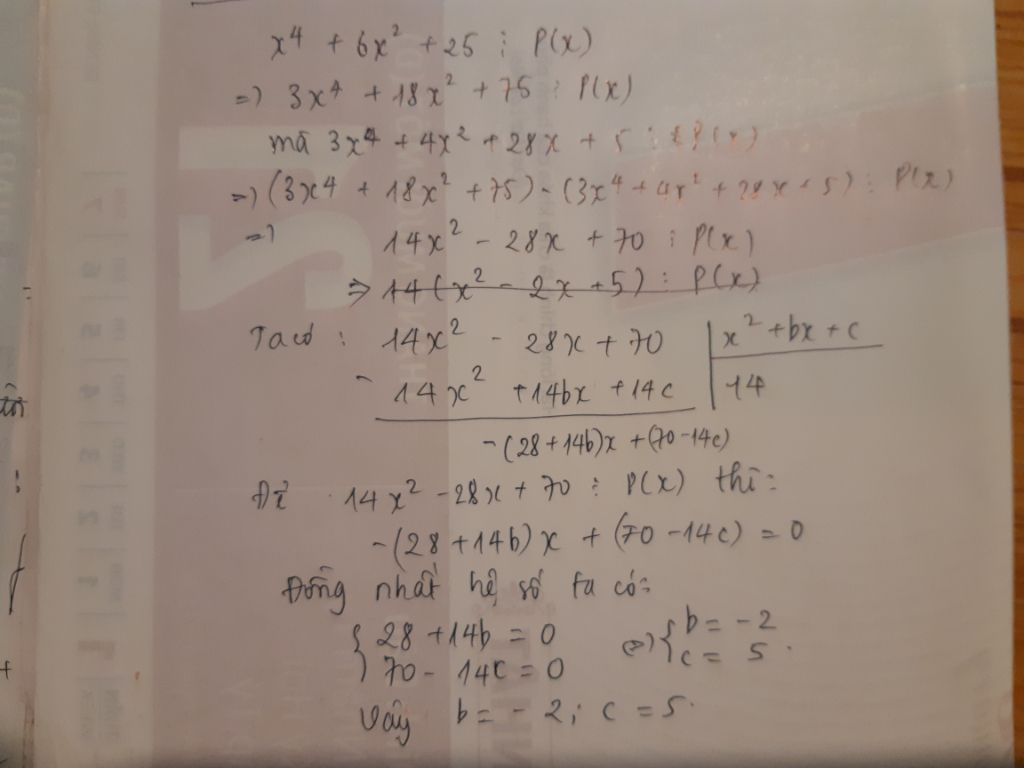 x⁴ + 6x² + 25 ⋮ P(x)
=) 3x⁴ + 18x² + 75 ⋮ P(x)
mã 3x⁴ + 4x² + 28x + 5 ⋮ P(x)
=) (3x⁴ + 18x² + 75) - (3x⁴ + 4x² + 28x + 5) ⋮ P(x)
=) 14x² - 28x + 70 ⋮ P(x)
=> 14(x² - 2x + 5) ⋮ P(x)
Ta có : 14x² - 28x + 70 | x² + bx + c
- 14x² + 14bx + 14c | 14
-(28 + 14b)x + (70 - 14c)
Để 14x² - 28x + 70 ⋮ P(x) thì:
-(28 + 14b)x + (70 - 14c) = 0
Đồng nhất hệ số ta có:
{ 28 + 14b = 0 (=) { b = -2
70 - 14c = 0 c = 5.
Vậy b = - 2; c = 5.